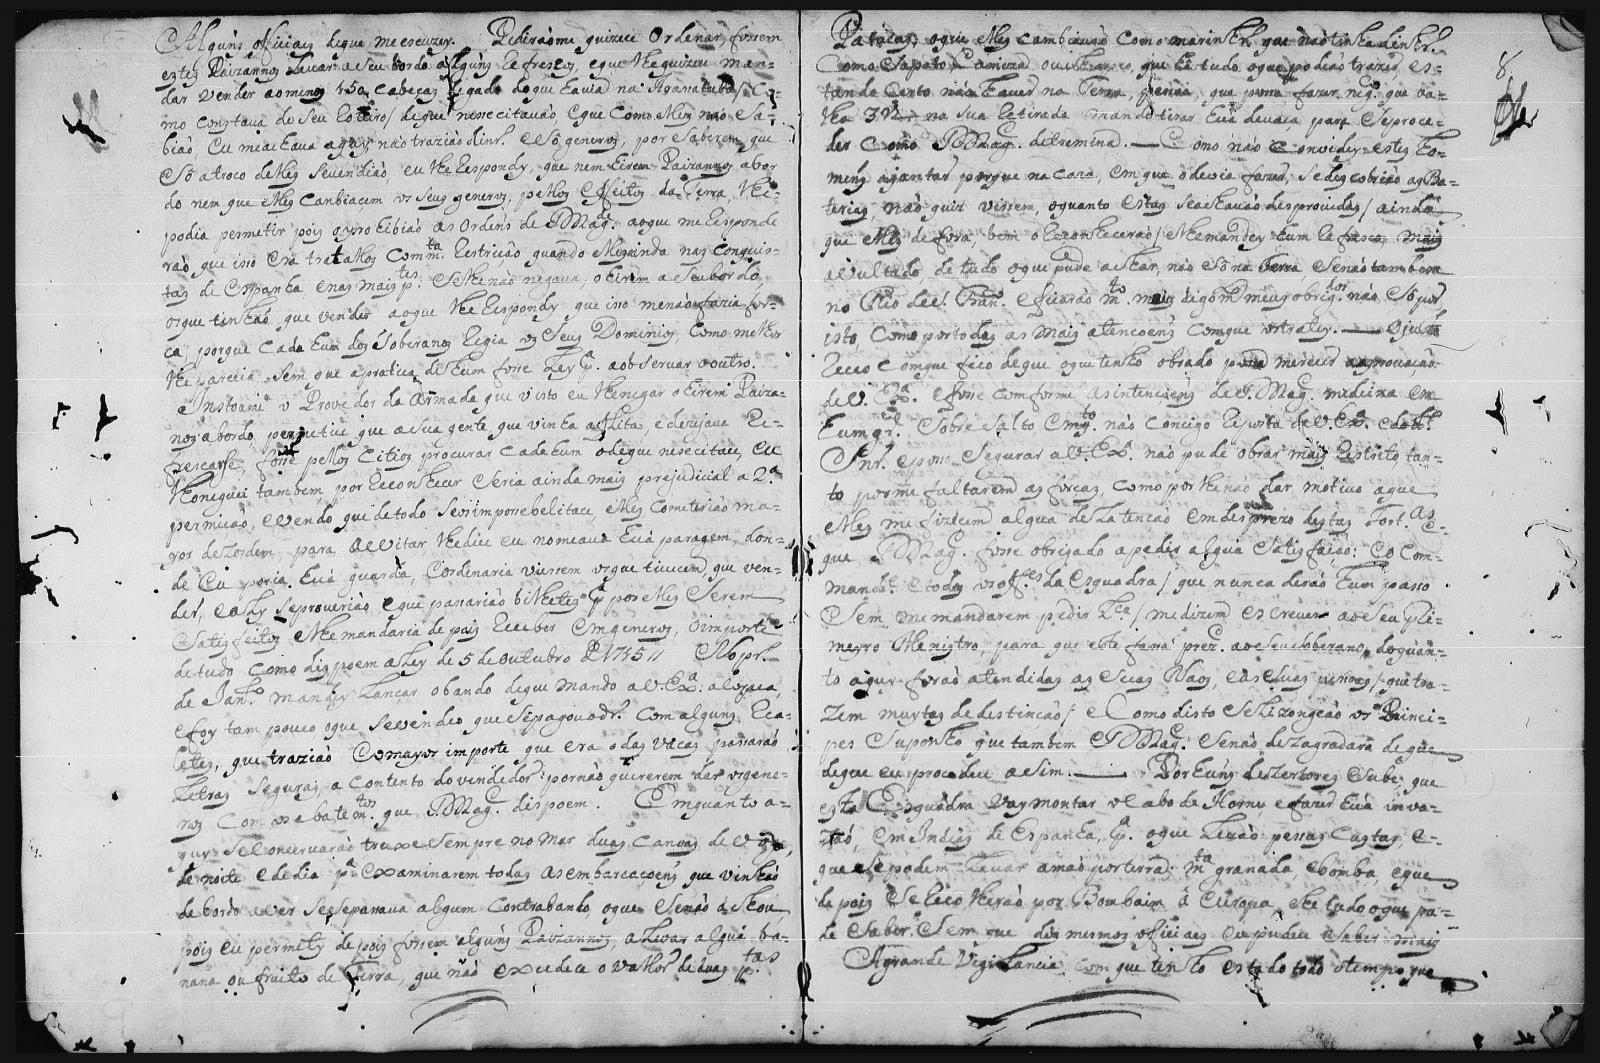 Alguns officiaes de que me escuzey. Pedirãome quizece Ordenar, fossem
estes Paizannos Levar a seu bordo alguns refrescos, e que lhe quizece man-
dar vender ao menos 150 cabeças de gado do que havia na Aganatuba / Co-
mo constava do seu Roteiro / de que nececitavão, Eque Como elles não sa-
bião Eu me achava aqui, não trazião dinr.º e Só generos, por Saberem que
Só atroco delles Se vendião, eu lhe Respondy, que nem hirem Paizannos abor-
do nem que elles canbiacem os Seus generos, pellos Effeitos da Terra, lhe
podia permetir pois o prohibião as Ordens de S Mag.de ao que me Responde
rão, que isso era tratallos Com m.ta Restrição quando elles ainda nas Conquis-
tas de Espanha, e nas mais p.tes Se lhe não negava, o hirem a Seu bordo,
os que tinhão que vender ao que lhe Respondy que isso me não fazia for-
ca, porque Cada hum dos Soberanos Regia os Seus Dominios, Como milhor
lhe parecia, Sem que a pratica de hum fosse Ley p.ª a observar o outro.
Instoume o Provedor da Armada que visto eu lhe negar o hirem Paiza-
nos abordo, permetice que a sua gente que vinha aflita, e dezejava Re-
frescarse, fosse pellos Citios procurar cada hum o de que nececitace, Eu
lhoneguei tambem por Reconhecer Seria ainda mais prejudicial a 2.ª
permicão, e vendo que de todo Se impocebelitace, elles Cometerião ma-
yor dezordem, para a evitar, lhe dice eu nomeava huã paragem, don-
de Eu poria huã guarda, Eordinaria viessem os que tivecem, que ven-
der, e ahy Se proverião, e que passarião bilhetes p.ª por elles Serem
Satisfeitos elhe mandaria depois Receber Em generos, o importe
de tudo como dispoem a Ley de 5 de Outubro de 1715 // No pr.º
de Jan.ro mandey Lançar o bando de que mando a V. Ex.ª a Copia,
e foy tam pouco o que Se vendeo que Se pagou a dr.º Com alguns Rea-
letes, que trazião Eo mayor importe que era o das vacas passarão
Letras Seguras, a Contento do vendedor por não quererem dar os gene-
ros Com os abatem.tos que S Mag.e dispoem. Emquanto a-
quy Se Conservarão truxe Sempre no Mar duas Canoas de Vigia,
de noite e de dia p.ª Examinarem todas as embarcaçoens que vinhão
de bordo a ver Se Se passava algum Contrabando, o que Se não achou
pois eu permety depois fossem alguns Paizannos, a Levar algua ba-
nana ou fruito da Terra, que não excedece o vallor de duas p.tas
8
Patacas, o que elles cambiavão Como marinhr.º que não tinha dinhr.º
Como Sapato, Camiza ou Lenço, que hé tudo o que podião trazer, es-
tando Certo não haver na Terra, pessoa, que possa fazer neg.º que va-
lha na Sua Retirada mandotirar huã devaca para Se proce-
der Como S Mag.e detremina. — E como não Convidey estes ho-
mens a jantar porque na caza, em que o devia fazer, Se descobrião as Ba-
terias, não quiz vissem, o quanto estas Se achavão desprovidas / ainda
que elles de fora, bem o Reconhecerão / lhe mandey hum Refresco mais
avultado, de tudo o que pude achar, não Só na Terra Senão tambem
no Rio de S. Fran.co e ficarão m.to mais digo m.to meus obrig.dos não Só por
isto, Como por todas as mais atencoens Comque os tratey. — O justo
Receo comque fico de que o que tenho obrado possa merecer a aprovação
de V. Ex.ª e fosse comforme as intenciõens de S. Mag.e me deixa em
hum gr.de Sobre Salto Emq.to não Consigo Reposta de V. Ex.ª e do d.º
Snr. eposso Segurar a V. Ex.ª não pude obrar mais Restrito tan-
to por me faltarem as forcas, como por lhe não dar motivo a que
elles me fizecem algua dezatencão em desprezo destas Fort.as e
que S Mag.e fosse obrigado a pedir algua Satisfação; Eo Com-
mand.e e todos os off.es da Esquadra / que nunca derão hum passo
Sem me mandarem pedir L.ca / me dizem escrever ao Seu Pri-
meyro Menistro para que este faça prez.e ao Seu Soberano, do quan-
to aquy forão atendidas as Suas Naos, e as Suas pessoas / que tra-
zem muytas de destincão / e Como disto Se lizongeão os Princi-
pes Suponho que tambem S Mag.e Se não dezagradará de que
de que eu procedece asim. — Por huns dezertores Soube; que
esta Esquadra Vay montar o Cabo de Horne, e fazer huã inva-
zão, em Indias de Espanha, p.ª o que Levão pessas Curtas, e-
que Se podem Levar a mão por terra; m.ta granada, e bomba, e que
depois Se Recolherão por Bombaim á Europa, he tudo o que pu-
de Saber Sem que dos mesmos officiaes eu pudece Saber mais
A grande Vigilancia, com que tenho estado todo o tempo que